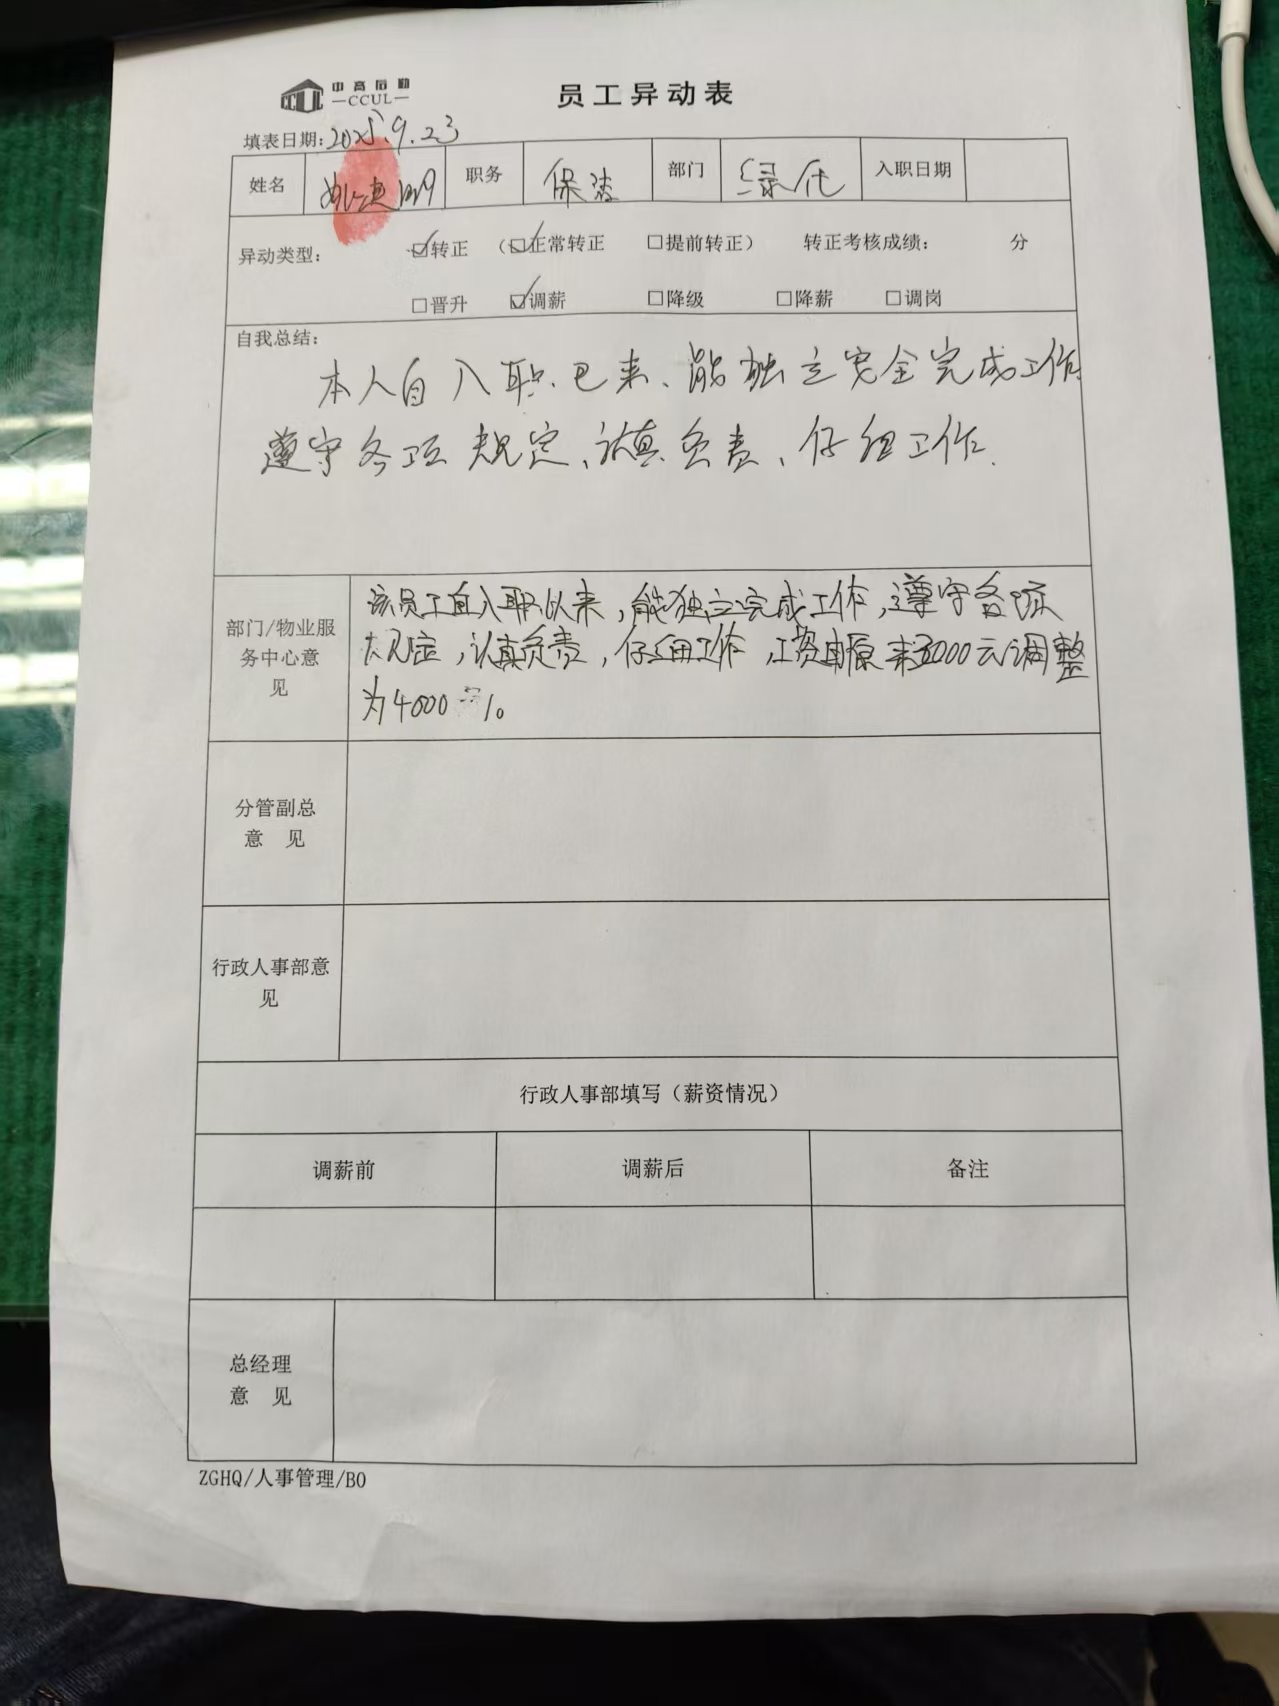 中高后勤
CCUL
员工异动表
填表日期:2025.9.23
姓名 职务 保洁 部门 绿化 入职日期
异动类型: ☑转正 (☑正常转正 □提前转正) 转正考核成绩: 分
□晋升 ☑调薪 □降级 □降薪 □调岗
自我总结:
本人自入职已来、能独立完全完成工作
遵守各项规定、认真负责、仔细工作.
部门/物业服
务中心意
见
该员工自入职以来,能独立完成工作,遵守各项
规定,认真负责,仔细工作,工资由原来3000元调整
为4000元。
分管副总
意 见
行政人事部意
见
行政人事部填写(薪资情况)
调薪前 调薪后 备注
总经理
意 见
ZGHQ/人事管理/B0